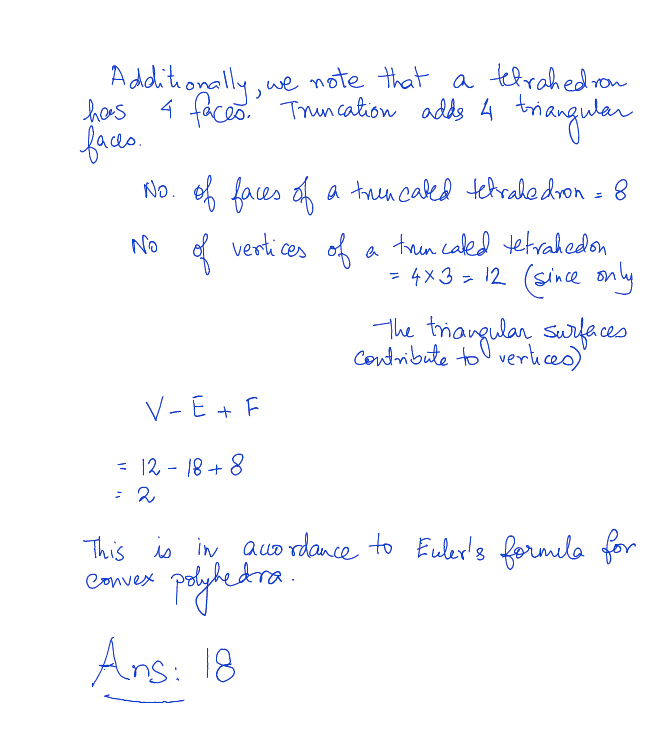 Additionally, we note that a tetrahedron
has 4 faces. Truncation adds 4 triangular
faces.
No. of faces of a truncated tetrahedron = 8
No of vertices of a truncated tetrahedon
= 4×3 = 12 (since only
the triangular surfaces
contribute to vertices)
V - E + F
= 12 - 18 + 8
= 2
This is in accordance to Euler's formula for
convex polyhedra.
Ans: 18